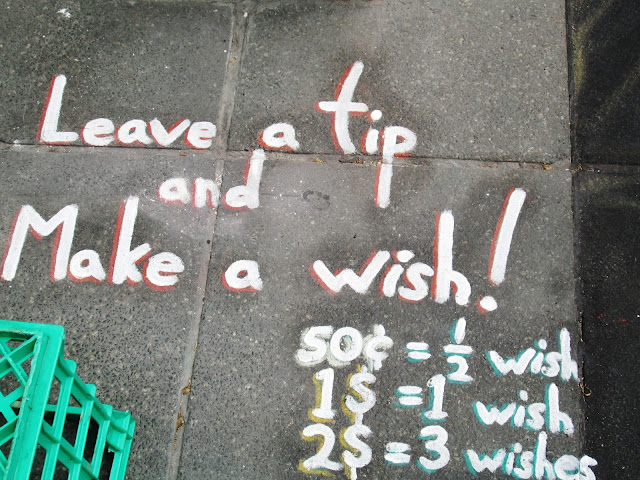 Leave a tip
and
Make a wish!
50¢ = 1/2 wish
1$ = 1 wish
2$ = 3 wishes